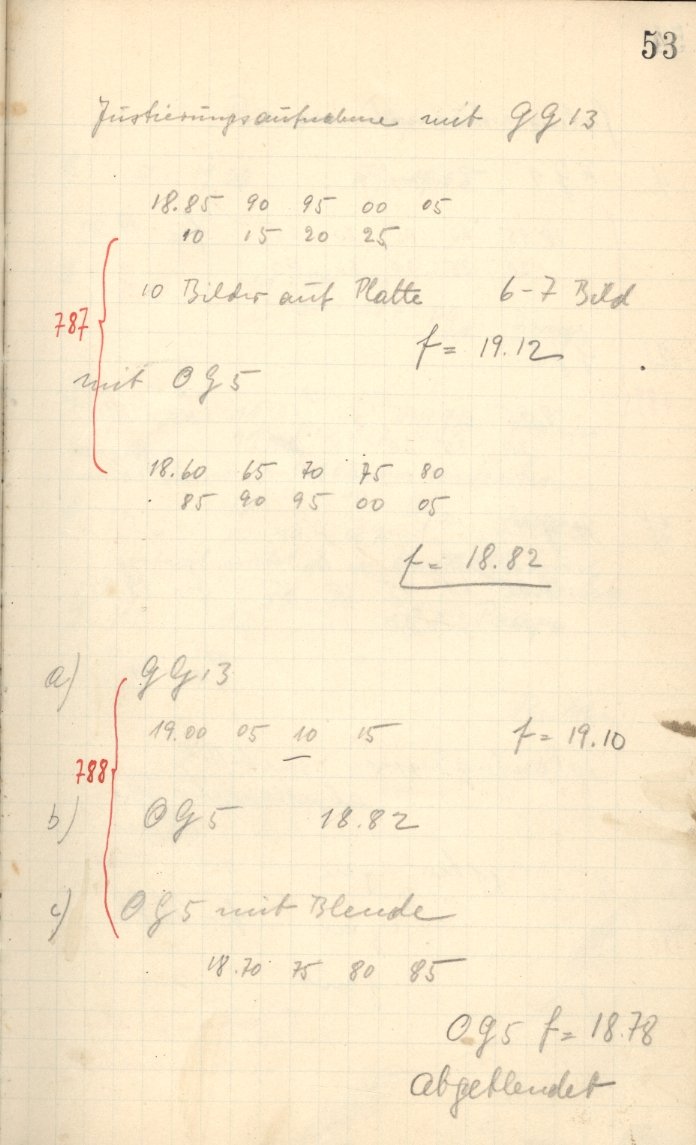 53
Justierungsaufnahme mit GG13
18.85 90 95 00 05
10 15 20 25
10 Bilder auf Platte 6-7 Bild
787
f = 19.12
mit OG5
18.60 65 70 75 80
85 90 95 00 05
f = 18.82
a) GG13
19.00 05 10 15 f = 19.10
788
b) OG5 18.82
c) OG5 mit Blende
18.70 75 80 85
OG5 f = 18.78
abgeblendet